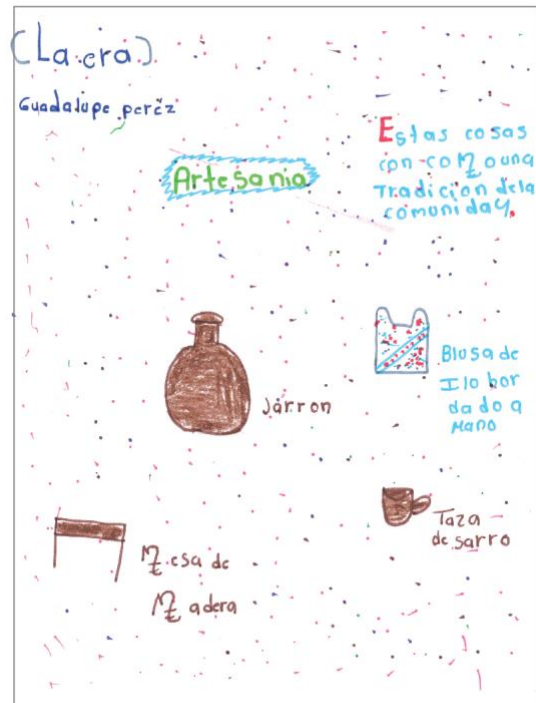 (La era)
Guadalupe perez
Artesania
Estas cosas
con como una
Tradicion dela
comuniday.
Járron
Blusa de
Ilo bor
dado a
Mano
Mesa de
Madera
Taza
de sarro